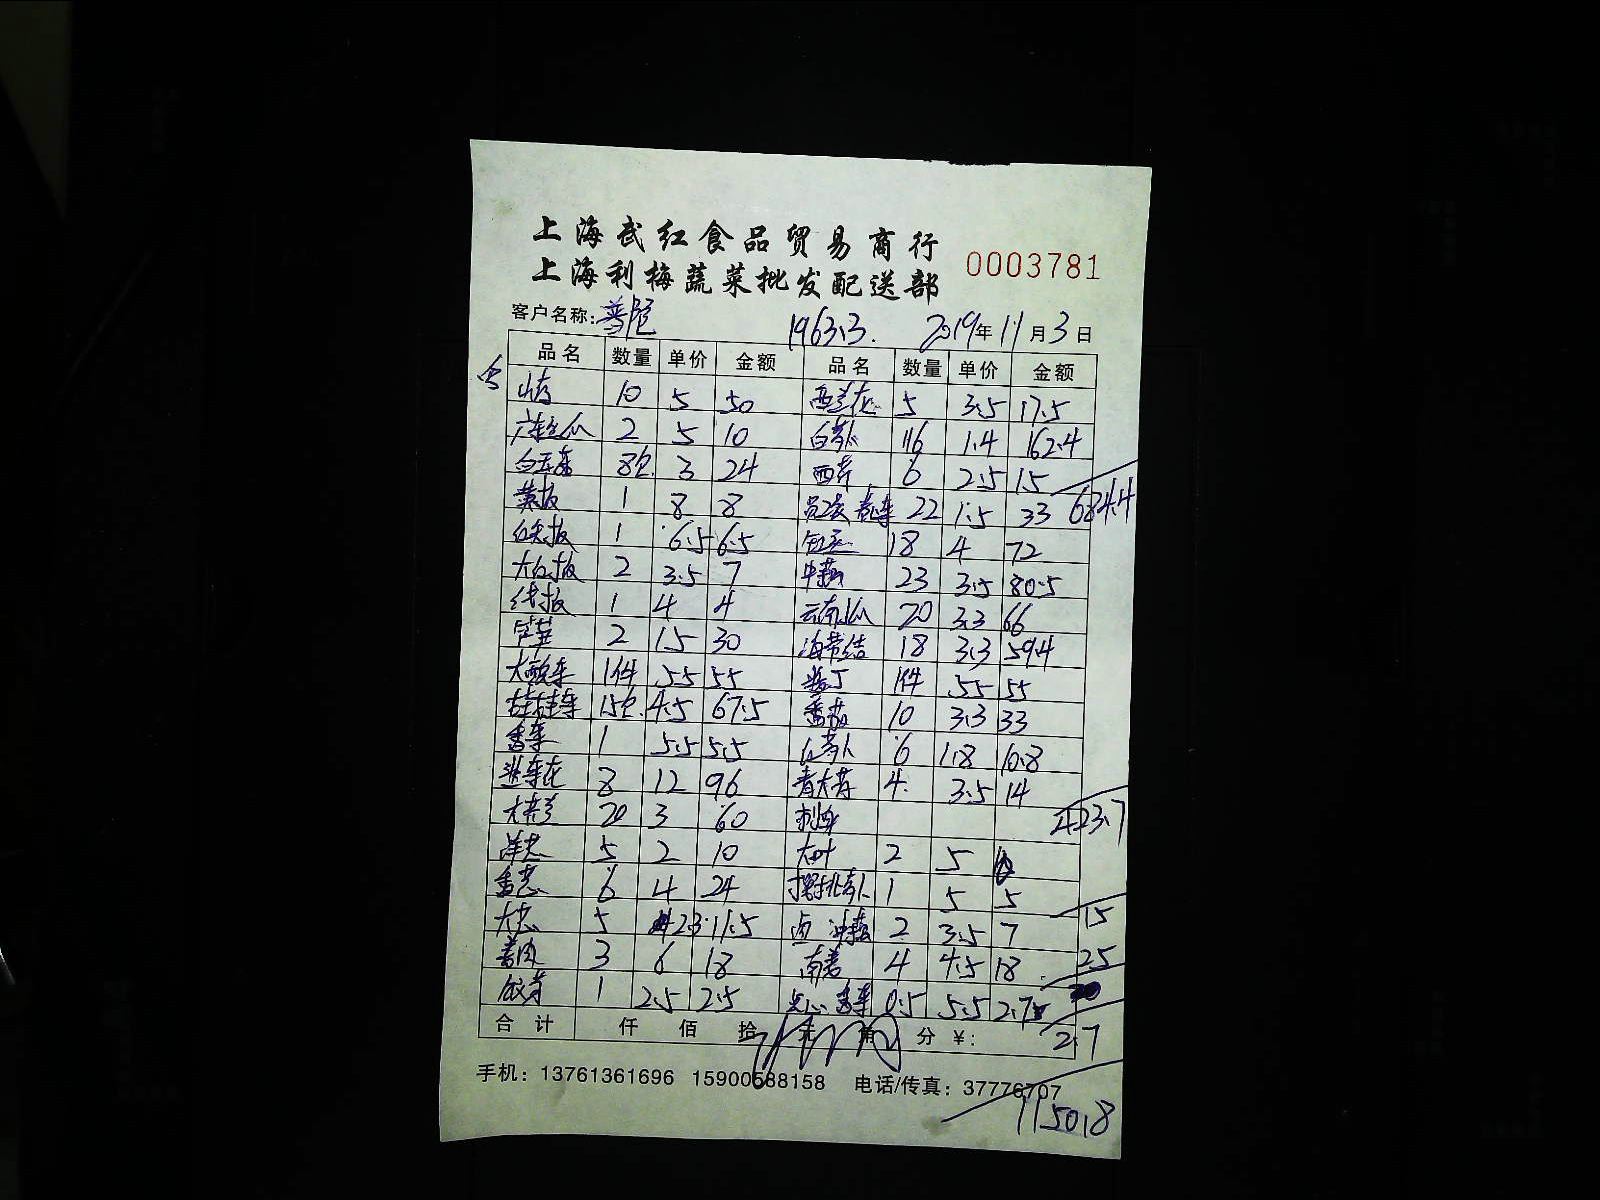 上海武红食品贸易商行
上海利梅蔬菜批发配送部
0003781
客户名称: 1963.3. 2019年11月3日
品名 数量 单价 金额 品名 数量 单价 金额
山药 10 5 50 西兰花 5 3.5 17.5
2 5 10 白萝卜 116 1.4 162.4
白玉菇 8包 3 24 西芹 6 2.5 15
684.4
黄椒 1 8 8 22 1.5 33
红尖椒 1 6.5 6.5 18 4 72
大红椒 2 3.5 7 中藕 23 3.5 80.5
线椒 1 4 4 云南小瓜 20 3.3 66
芦笋 2 15 30 海带结 18 3.3 59.4
1件 55 55 1件 55 55
15包 4.5 67.5 番茄 10 3.3 33
香菜 1 5.5 5.5 红萝卜 6 1.8 10.8
8 12 96 4 3.5 14
20 3 60 刺身
423.7
洋葱 5 2 10 大叶 2 5 10
香葱 6 4 24 1 5 5
15
大葱 5 2.3 11.5 2 3.5 7
姜肉 3 6 18 南姜 4 4.5 18
25
1 2.5 2.5 点心 香菜 0.5 5.5 2.7
合计 仟 佰 拾 元 角 分 ¥:
2.7
手机: 13761361696 15900588158 电话/传真: 37776707
1150.8